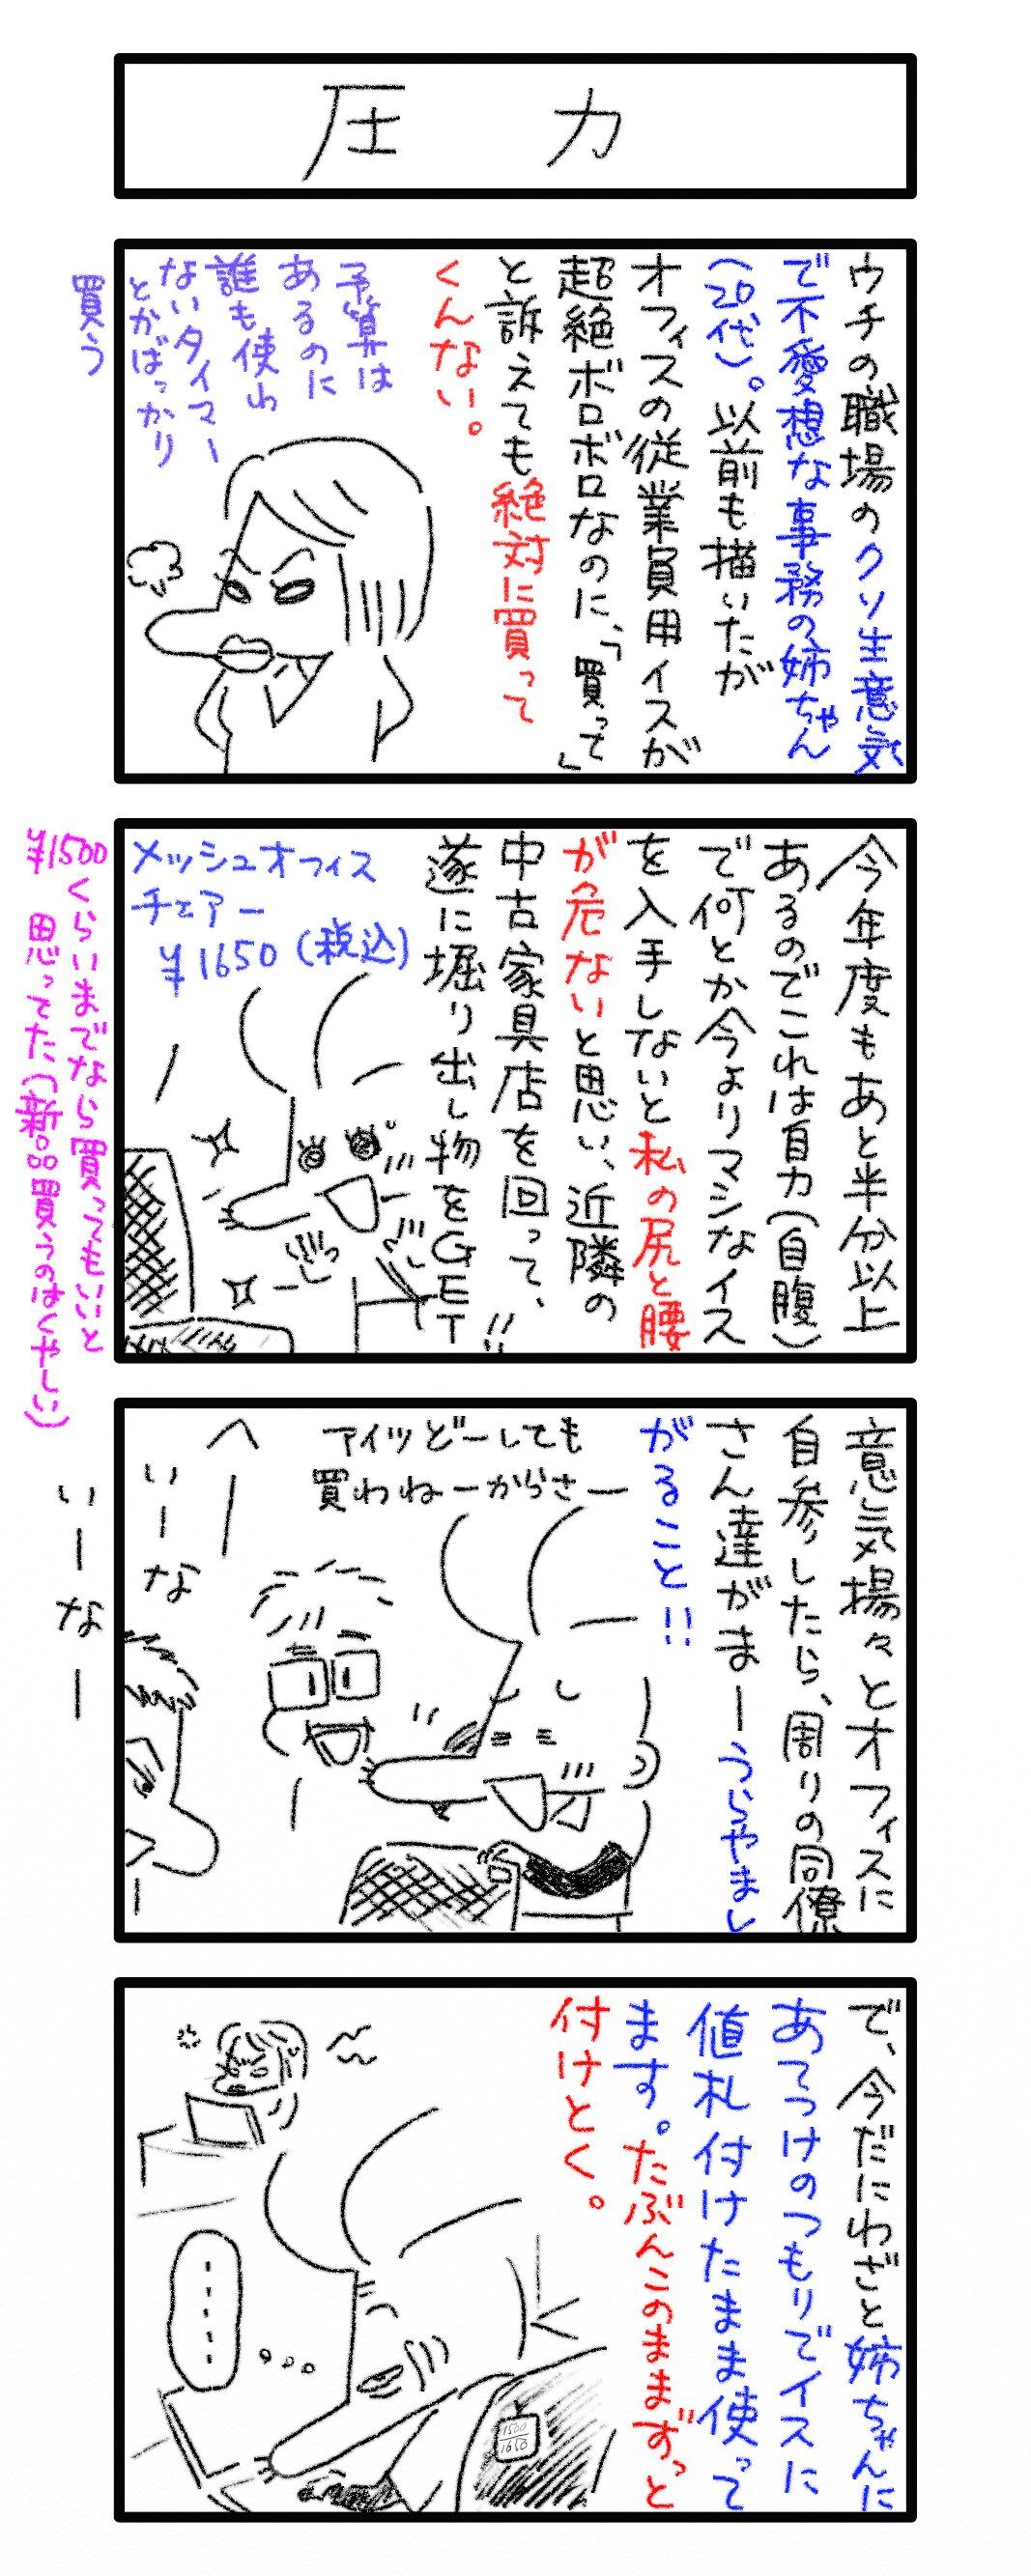 圧力
ウチの職場のクソ生意気
で不愛想な事務の姉ちゃん
(20代)。以前も描いたが
オフィスの従業員用イスが
超絶ボロボロなのに、「買って」
と訴えても絶対に買って
くんない。
予算は
あるのに
誰も使わ
ないタイマー
とかばっかり
買う
今年度もあと半分以上
あるのでこれは自力(自腹)
で何とか今よりマシなイス
を入手しないと私の尻と腰
が危ないと思い、近隣の
中古家具店を回って、
遂に堀り出し物をGET!!
メッシュオフィス
チェアー
¥1650(税込)
¥1500くらいまでなら買ってもいいと
思ってた(新品買うのはくやしい)
意気揚々とオフィスに
自参したら、周りの同僚
さん達がまーうらやまし
がること!!
アイツどーしても
買わねーからさー
へー
いーな
いーなー
で、今だにわざと姉ちゃんに
あてつけのつもりでイスに
値札付けたまま使って
ます。たぶんこのままずっと
付けとく。
.....
1500
1650